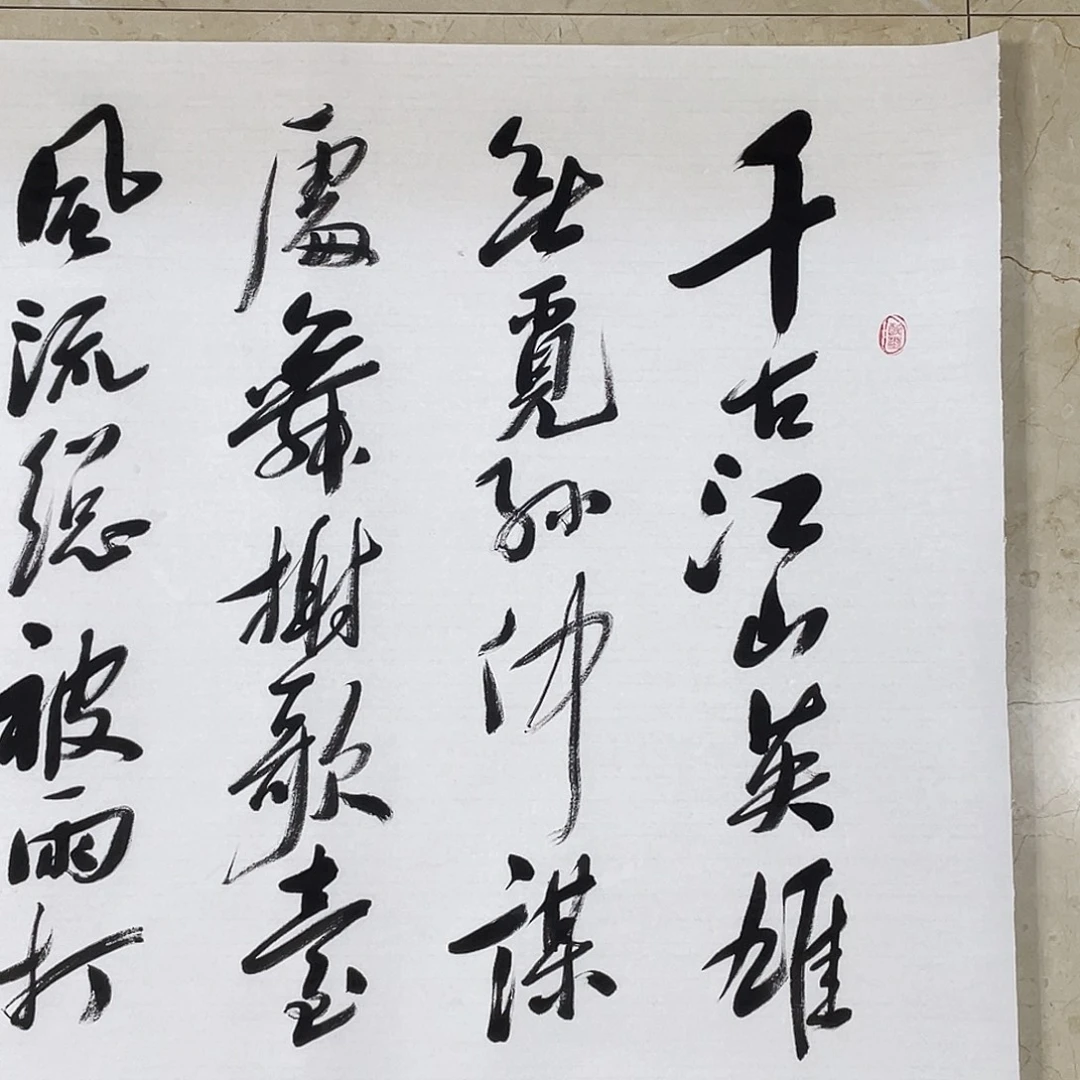 千古江山英雄
無覓孫仲謀
處舞榭歌臺
風流總被雨打